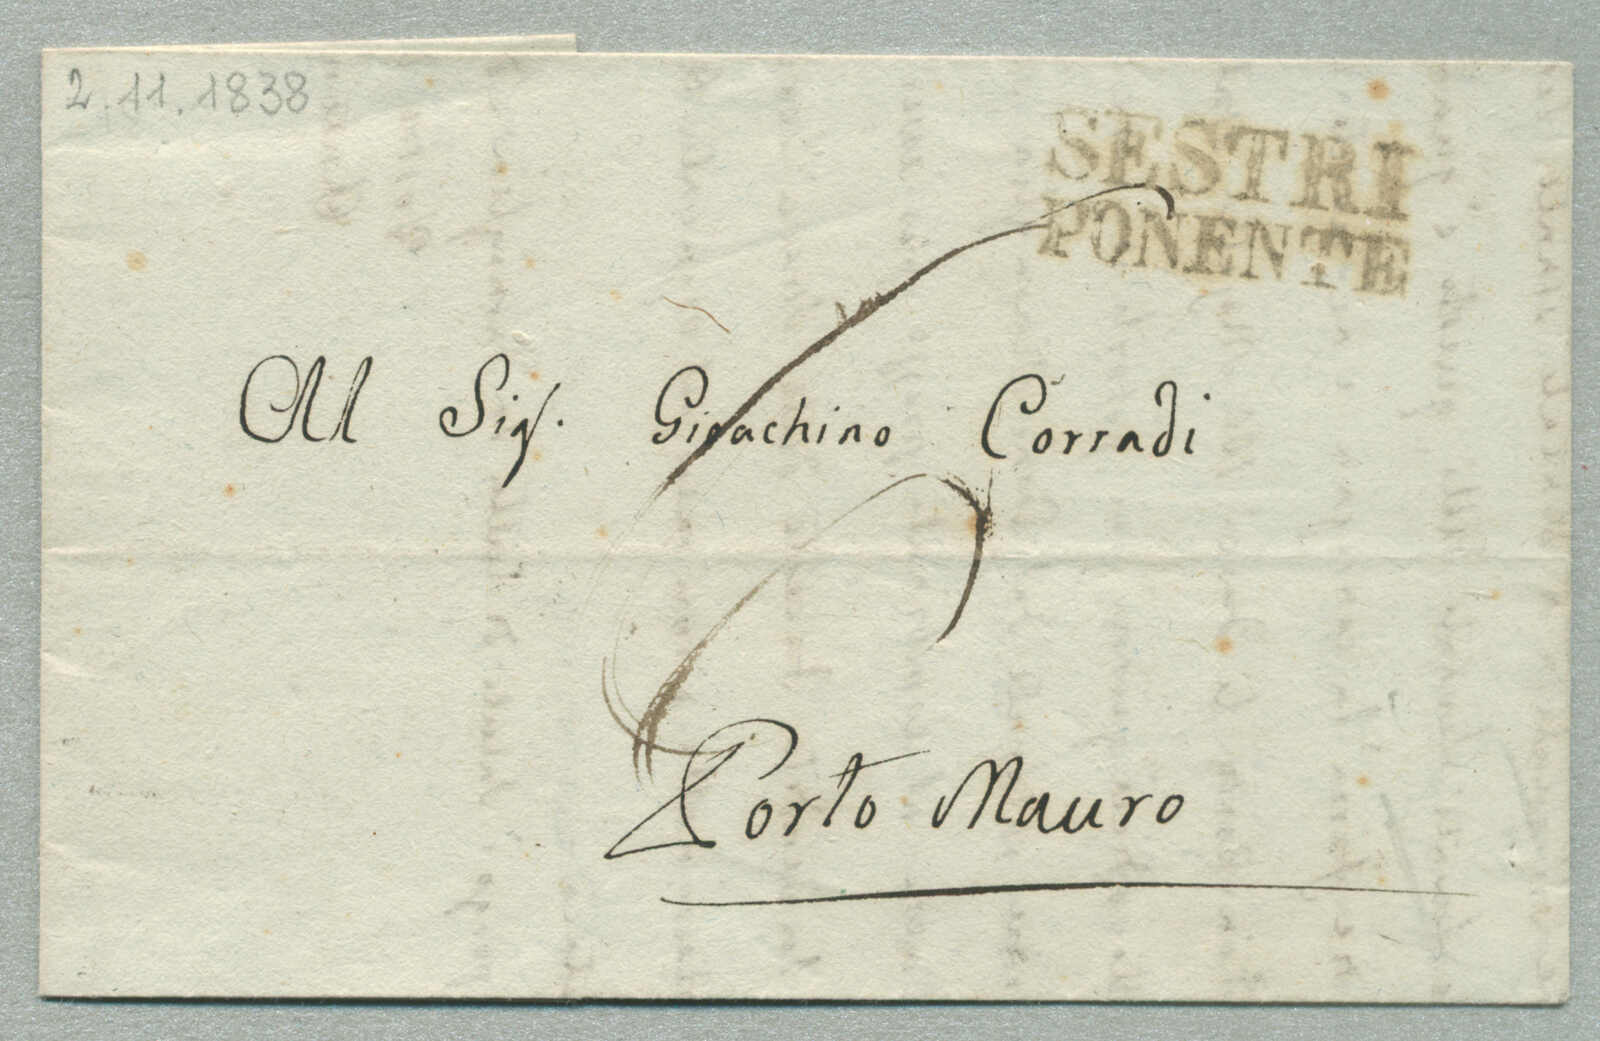 2.11.1838
SESTRI
PONENTE
Al Sigr. Gioachino Corradi
Porto Mauro